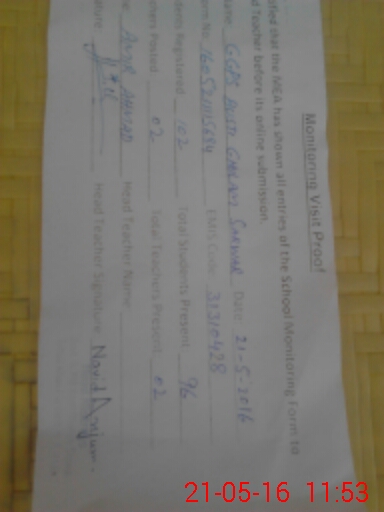 Monitoring Visit Proof
tified that the MEA has shown all entries of the School Monitoring Form to
d Teacher before its online submission.
Name GGPS Date: 21-5-2016
orm No. EMIS Code 31310428
dents Registered 102 Total Students Present 96
chers Posted 02 Total Teachers Present 02
Head Teacher Name
ature Head Teacher Signature Navid Anjum.
21-05-16 11:53